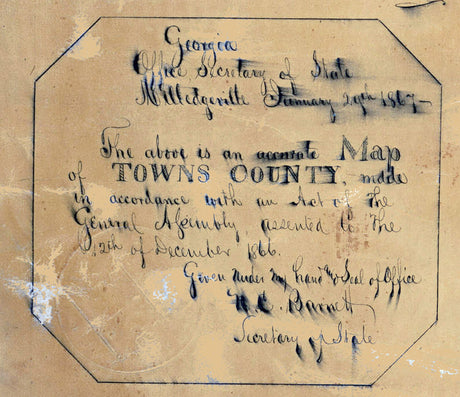 Georgia
Office Secretary of State
Milledgeville January 29th 1867
The above is an accurate Map
of TOWNS COUNTY, made
in accordance with an Act of the
General Assembly, assented to the
12th of December 1866.
Given under my hand & Seal of Office
N. C. Barnett
Secretary of State